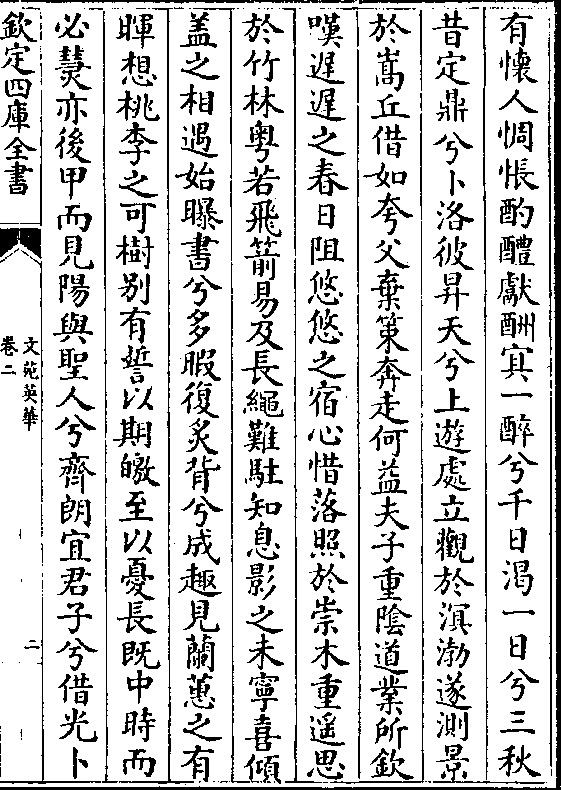 有懷人惆悵酌醴獻酬寘一醉兮千日渴一日兮三秋
昔定鼎兮卜洛彼昇天兮上遊處立觀於溟渤遂測景
於嵩丘借如夸父棄策奔走何益夫子重陰道業所欽
嘆遲遲之春日阻悠悠之宿心惜落照於崇木重遥思
於竹林粤若飛箭易及長繩難駐知息影之未寧喜傾
盖之相遇始曝書兮多暇復炙背兮成趣見蘭蕙之有
暉想桃李之可樹别有誓以期皦至以憂長既中時而
必熭亦後甲而見陽與聖人兮齊朗宜君子兮借光卜
欽定四庫全書
文苑英華
卷二
二